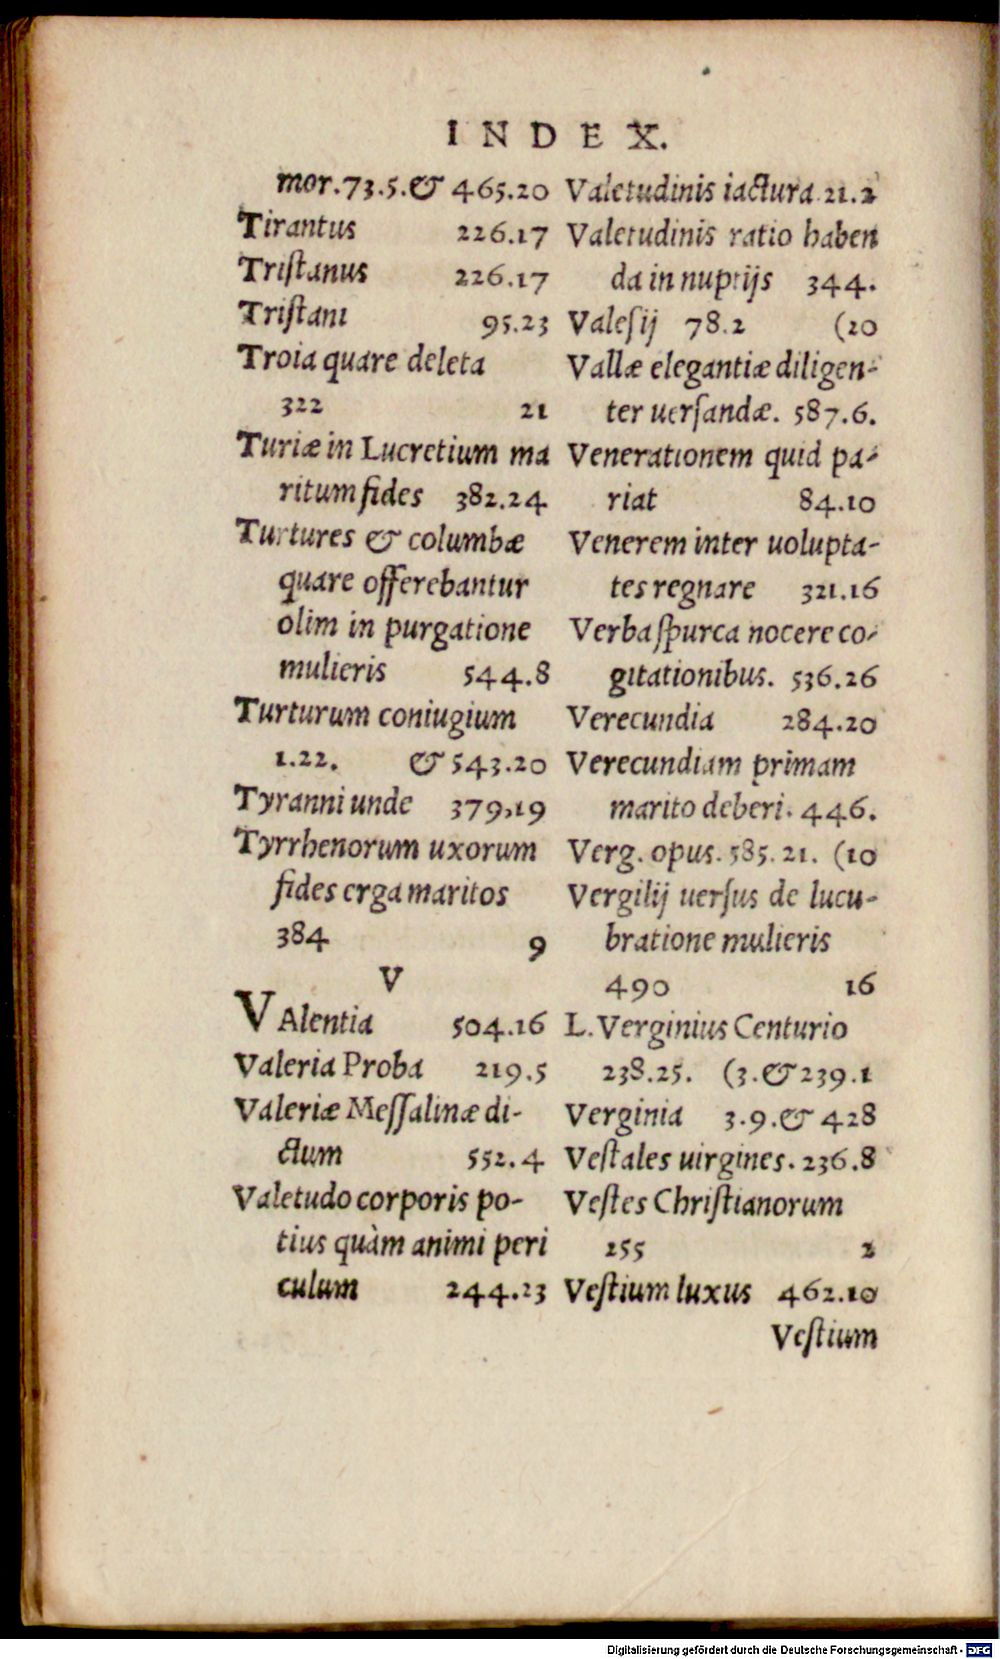 INDEX.
mor.73.5.& 465.20
Tirantus 226.17
Tristanus 226.17
Tristani 95.23
Troia quare deleta
322 21
Turiæ in Lucretium ma
ritum fides 382.24
Turtures & columbæ
quare offerebantur
olim in purgatione
mulieris 544.8
Turturum coniugium
1.22. & 543.20
Tyranni unde 379,19
Tyrrhenorum uxorum
fides erga maritos
384 9
V
VAlentia 504.16
Valeria Proba 219.5
Valeriæ Messalinæ di-
ctum 552.4
Valetudo corporis po-
tius quàm animi peri
culum 244.23
Valetudinis iactura 21.2
Valetudinis ratio haben
da in nuptijs 344.
Valesij 78.2 (20
Vallæ elegantiæ diligen-
ter uersandæ. 587.6.
Venerationem quid pa-
riat 84.10
Venerem inter uolupta-
tes regnare 321.16
Verba spurca nocere co-
gitationibus. 536.26
Verecundia 284.20
Verecundiam primam
marito deberi. 446.
Verg. opus. 585.21. (10
Vergilij uersus de lucu-
bratione mulieris
490 16
L. Verginius Centurio
238.25. (3.& 239.1
Verginia 3.9.& 428
Vestales uirgines. 236.8
Vestes Christianorum
255 2
Vestium luxus 462.10
Vestium
Digitalisierung gefördert durch die Deutsche Forschungsgemeinschaft - DFG